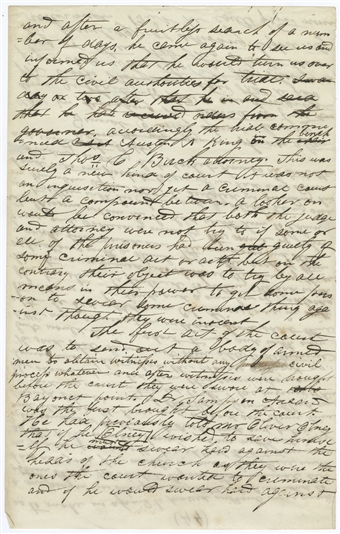 and after a fruitless search of a num
=ber of days, he came again to see us and
informed us that he would turn us over
to the civil authorities for trial.
day or two after that he
that he had received news from the
governor, accordingly the trial commenced
Austin A King on the bench
and Thos C Burch attorney. This was
surely a new kind of court it was not
an inquisition nor yet a criminal court
but a compound between. a looker on
would be convinced that both the judge
and attorney were not trying to if some or
all of the prisoners had been guilty of
some criminal act or acts but on the
contrary their object was to try by all
means in their power to get some pers
=on to swear some criminal thing aga
=inst though they were innocent
The first act of the court
was to send out a body of armed
men to obtain witnesses without any civil
process whatever and after witnesses were brought
before the court they were sworn at
Bayonet point. Dr Sampson
was the first brought before the court.
He had previously told Mr Oliver Olney
that if he Olney wished to save himse
=lf he must swear hard against the
heads of the church as they were the
ones the court wanted to criminate
and if he would swear hard against